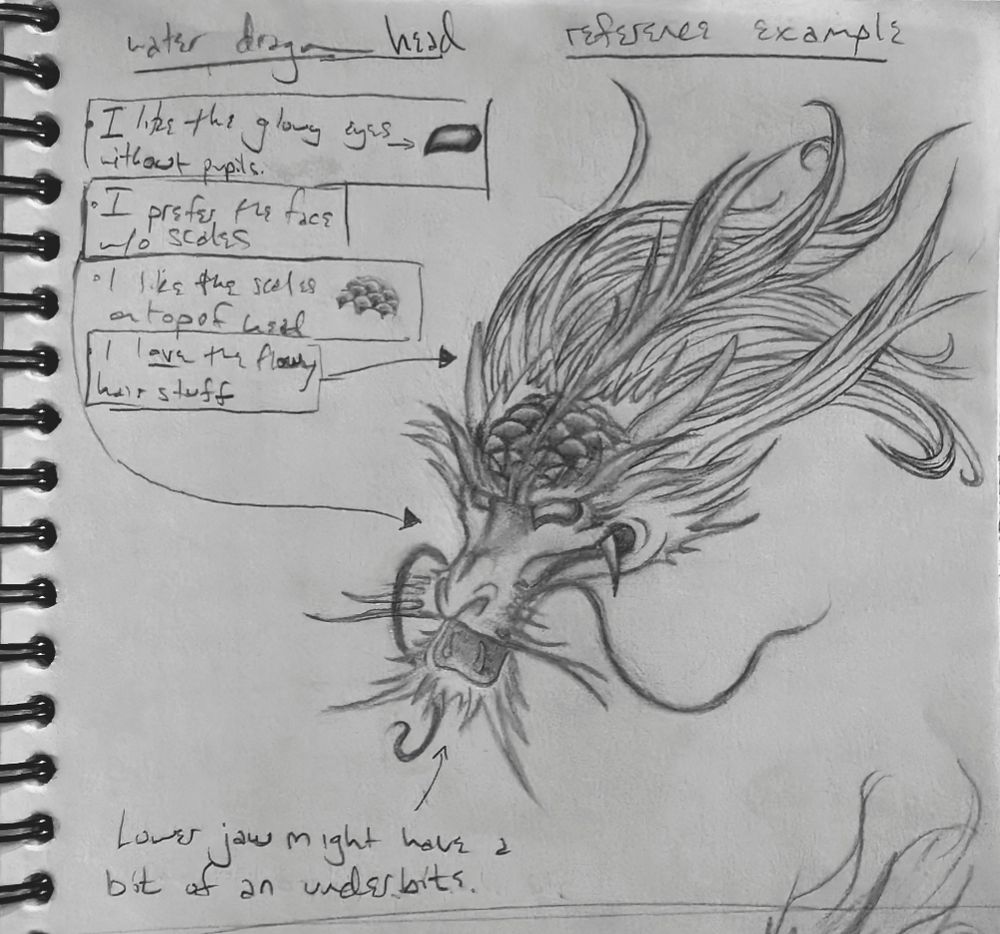 water dragon head
reference example
• I like the glowy eyes →
without pupils.
• I prefer the face
w/o scales
• I like the scales
on top of head
• I love the flowy
hair stuff
Lower jaw might have a
bit of an underbite.